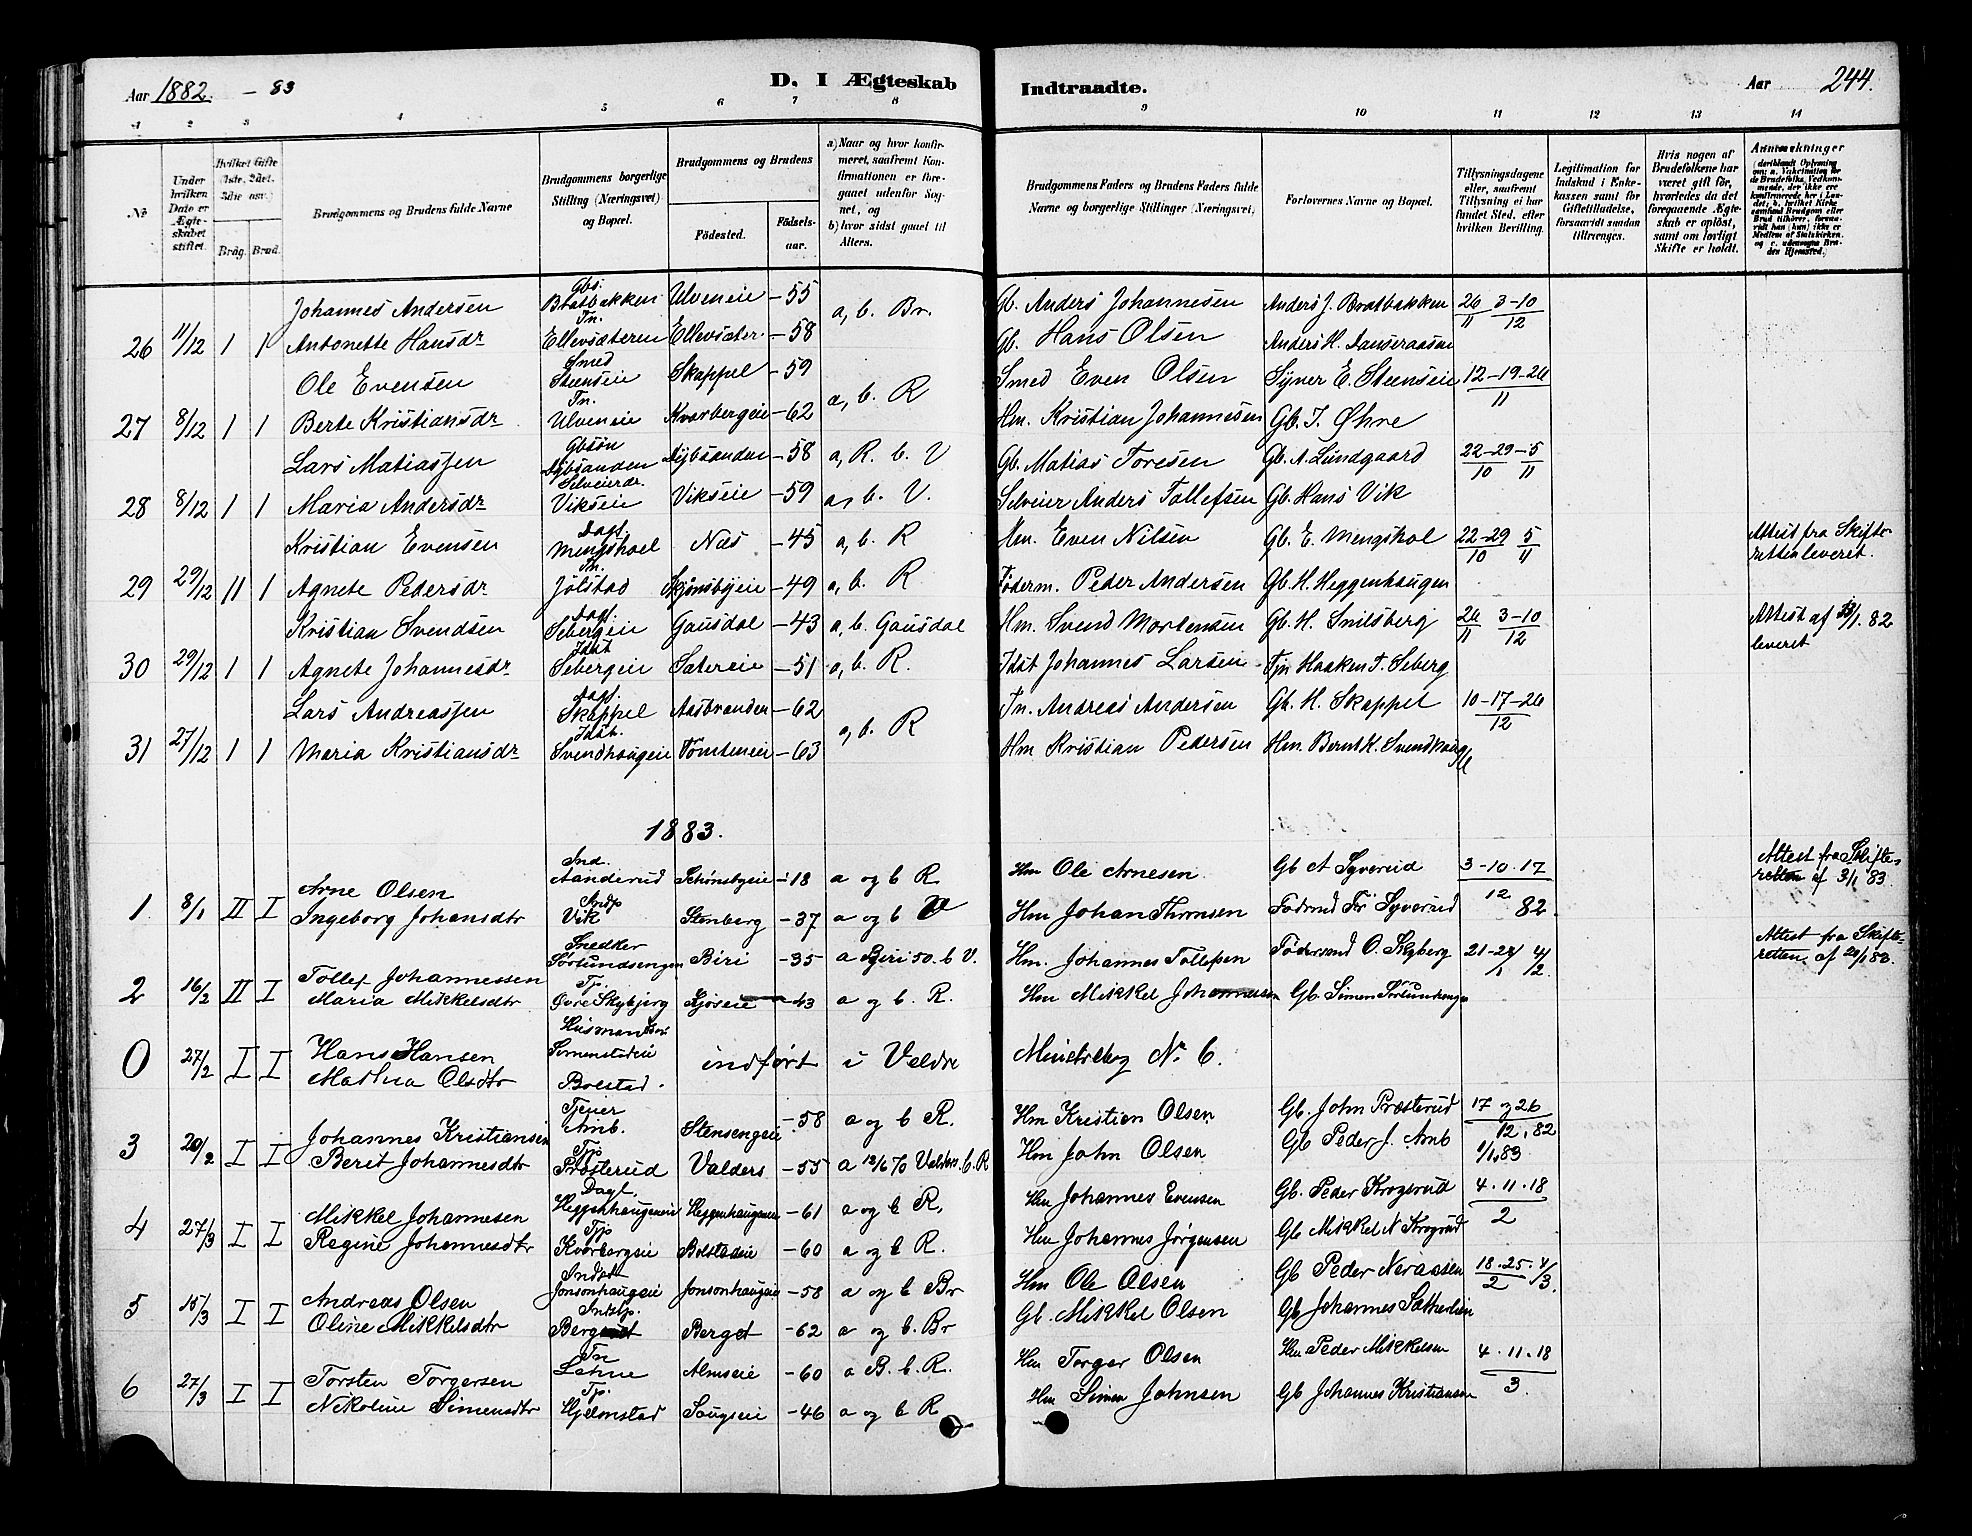 Aar 1882 - 83
D. I Ægteskab Indtraadte.
Aar 244.
1 2 3 4 5 6 7 8 9 10 11 12 13 14
No
Under hvilken Dato er Ægteskabet stiftet.
Hvilket Gifte (1ste, 2det, 3die osv.)
Brdg. Brud.
Brudgommens og Brudens fulde Navne
Brudgommens borgerlige Stilling (Næringsvei) og Bopæl.
Brudgommens og Brudens
Födested. Födselsaar.
a) Naar og hvor konfirmeret, saafremt Konfirmationen er foregaaet udenfor Sognet, og
b) hvor sidst gaaet til Alters.
Brudgommens Faders og Brudens Faders fulde Navne og borgerlige Stillinger (Næringsvei).
Forlovernes Navne og Bopæl.
Tillysningsdagene eller, saafremt Tillysning ei har fundet Sted, efter hvilken Bevilling.
Legitimation for Indskud i Enkekassen samt for Giftetilladelse, forsaavidt saadan tiltrænges.
Hvis nogen af Brudefolkene har været gift för, hvorledes da det foregaaende Ægteskab er oplöst, samt om lovligt Skifte er holdt.
Anmærkninger
Johannes Andersen Gbs. Bratbakken Ulveneie - 55 a, b. Br. Gb. Anders Johannesen Anders J. Bratbakken 26/11 3-10/12
26 11/12 1 1 Antonette Hansdr Tn. Ellevsæteren Ellevsæter - 58 Gb. Hans Olsen Anders H.
Ole Evensen Smed Steenseie Skappel - 59 a, b. R Smed Even Olsen Syver E. Steenseie 12-19-26/11
27 8/12 1 1 Berte Kristiansdr Tn. Ulveneie Kvarbergeie - 62 Hm. Kristian Johannesen Gb. I. Øhre
Lars Matiassen Gbsøn Dybsanden Dybsanden - 58 a, R. b. V Gb. Matias Toresen Gb. A. Lundgaard 22-29/10 5/11
28 8/12 1 1 Maria Andersdr Selveierdr. Vikseie Vikseie - 59 a, b. V. Selveier Anders Tollefsen Gb. Hans Vik
Kristian Evensen Dagl. Mengshoel Næs - 45 a, b. R Hm. Even Nilsen Gb. E. Mengshol 22-29/10 5/11 Attest fra Skifteretten leveret.
29 29/12 11 1 Agnete Pedersdr Tn. Jølstad Skjønsbyeie - 49 a, b. R Føderm. Peder Andersen Gb. H. Heggenhaugen
Kristian Svendsen Dagl. Sebergeie Gausdal - 43 a, b. Gausdal Hm. Svend Mortensen Gb. H. Snilsberg 26/11 3-10/12 Attest af 13/1. 82 leveret
30 29/12 1 1 Agnete Johannesdr Idst Sebergeie Sætereie - 51 a, b. R. Idst Johannes Larsen Tjn Haaken T. Seberg
Lars Andreassen Dagl. Skappel Aasbranden - 62 a, b. R Tn. Andreas Andersen Gb. H. Skappel 10-17-26/12
31 27/12 1 1 Maria Kristiansdr Idst. Svendhaugeie Tomteneie - 63 Hm Kristian Pedersen Hm. Bernt K. Svendhaug
1883.
Arne Olsen Ind. Aanderud Schønsbyeie - 18 a og b R Hm Ole Arnesen Gb A Syverud 3-10. 17 Attest fra Skifteretten af 3/1 83.
1. 8/1 II I Ingeborg Johansdtr Indp Vik Stenberg - 37 a og b V Hm Johan Thomsen Fødrmd Fr Syverud 12 82.
Tollef Johannessen Snedker Sørlundsengen Biri - 35 a Biri 50. b V. Hm. Johannes Tollefsen Føderaad O. Skyberg 21-28/1 4/2. Attest fra Skifteretten af 20/1 83.
2 16/2 II I Maria Mikkelsdtr Tj. Øvre Skybjerg Gjøreie - 43 a og b. R. Hm Mikkel Johannessen Gb. Simen Sørlundsengen
0 27/2 I I Hans Hansen Husmandssøn Simenstadeie indført i Veldre Ministerbog No 6.
Mathea Olsdtr Bolstad.
Johannes Kristiansen Tjener Amb. Stensengeie - 58 a og b R. Hm Kristian Olsen Gb. John Præsterud 17 og 26 12. 82
3 20/2 I I Berit Johannesdtr Tjp Præsterud Valders - 55 a 12/6 70 Valders. b. R Hm John Olsen Gb Peder J. Amb 1/1 83
Mikkel Johannesen Dagl. Heggenhaugeneie Heggenhaugeneie - 61 a og b R. Hm Johannes Evensen Gb. Peder Krogerud 4. 11. 18
4 27/3 I I Regine Johannesdtr Tjp Kvarbergseie Bolstadeie - 60 a og b R. Hm Johannes Jørgensen Gb Mikkel N Krogrud 2
Andreas Olsen Indst Jonsonhaugeie Jonsonhaugeie - 58 a og b Br Hm Ole Olsen Gb Peder Neraasen 18. 25./2 4/3.
5 15/3 I I Oline Mikkelsdtr Berget Berget - 62 a og b. Br Gb. Mikkel Olsen Gb Johannes Sætherlien
Torsten Torgersen Tn Lehne Almseie - 60 a B. b. R. Hm Torger Olsen Hm Peder Mikkelsen 4. 11. 18
6 27/3 I I Nikoline Simensdtr Tjp. Hjelmstad Saugseie - 46 a og b R Hm Simen Johnsen Gb Johannes Kristiansen 3.